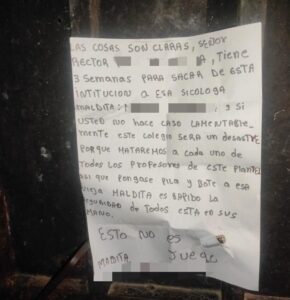 LAS COSAS SON CLARAS, SEÑOR
RECTOR A, TIENE
3 SEMANAS PARA SACAR DE ESTA
INTITUCION A ESA SICOLOGA
MALDITA: Y SI
USTED NO HACE CASO LAMENTABLE_
MENTE ESTE COLEGIO SERA UN DESASTRE
PORQUE MATAREMOS A CADA UNO DE
TODOS LOS PROFESORES DE ESTE PLANTEL
ASI QUE PONGASE PILA Y BOTE A ESA
VIEJA MALDITA ES RAPIDO LA
SEGURIDAD DE TODOS ESTA EN SUS
MANO.
ESTO NO ES
JUEGO
MADITA